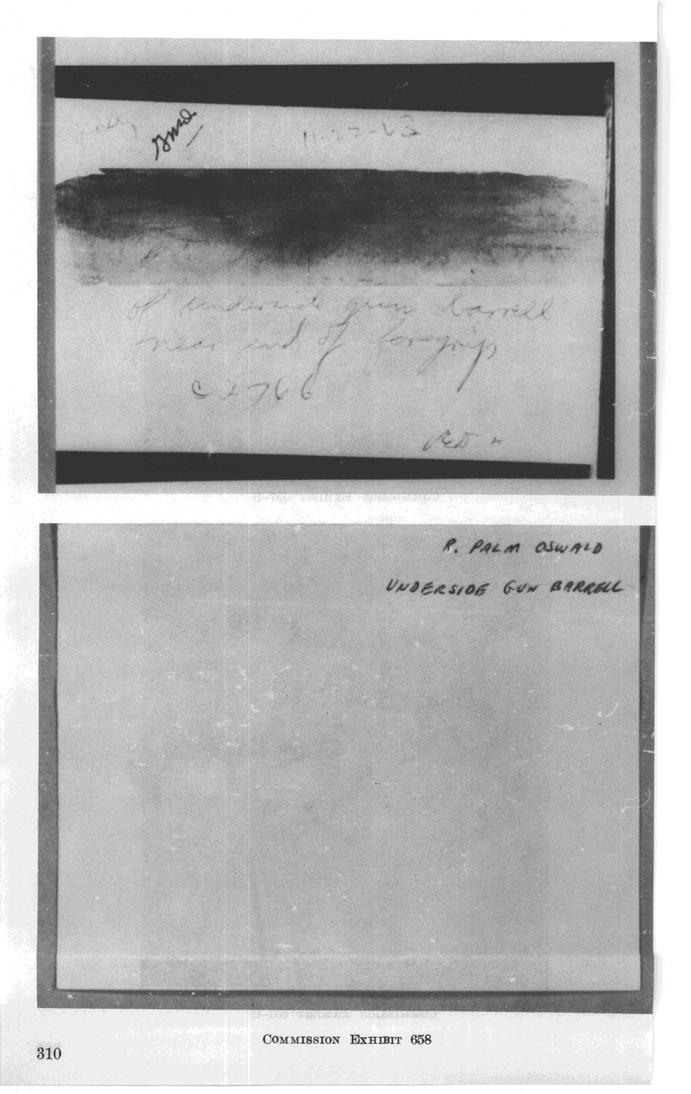 11-22-63
off underside gun barrell
near end of foregrip
C2766
R. PALM OSWALD
UNDERSIDE GUN BARRELL
COMMISSION EXHIBIT 658
310